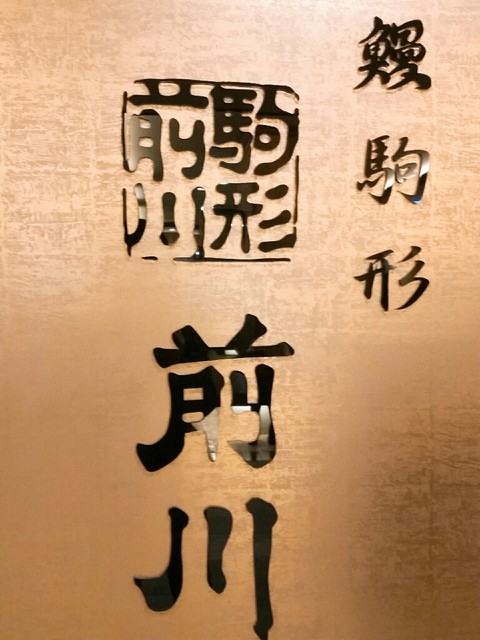 鰻駒形
駒形
前川
前川